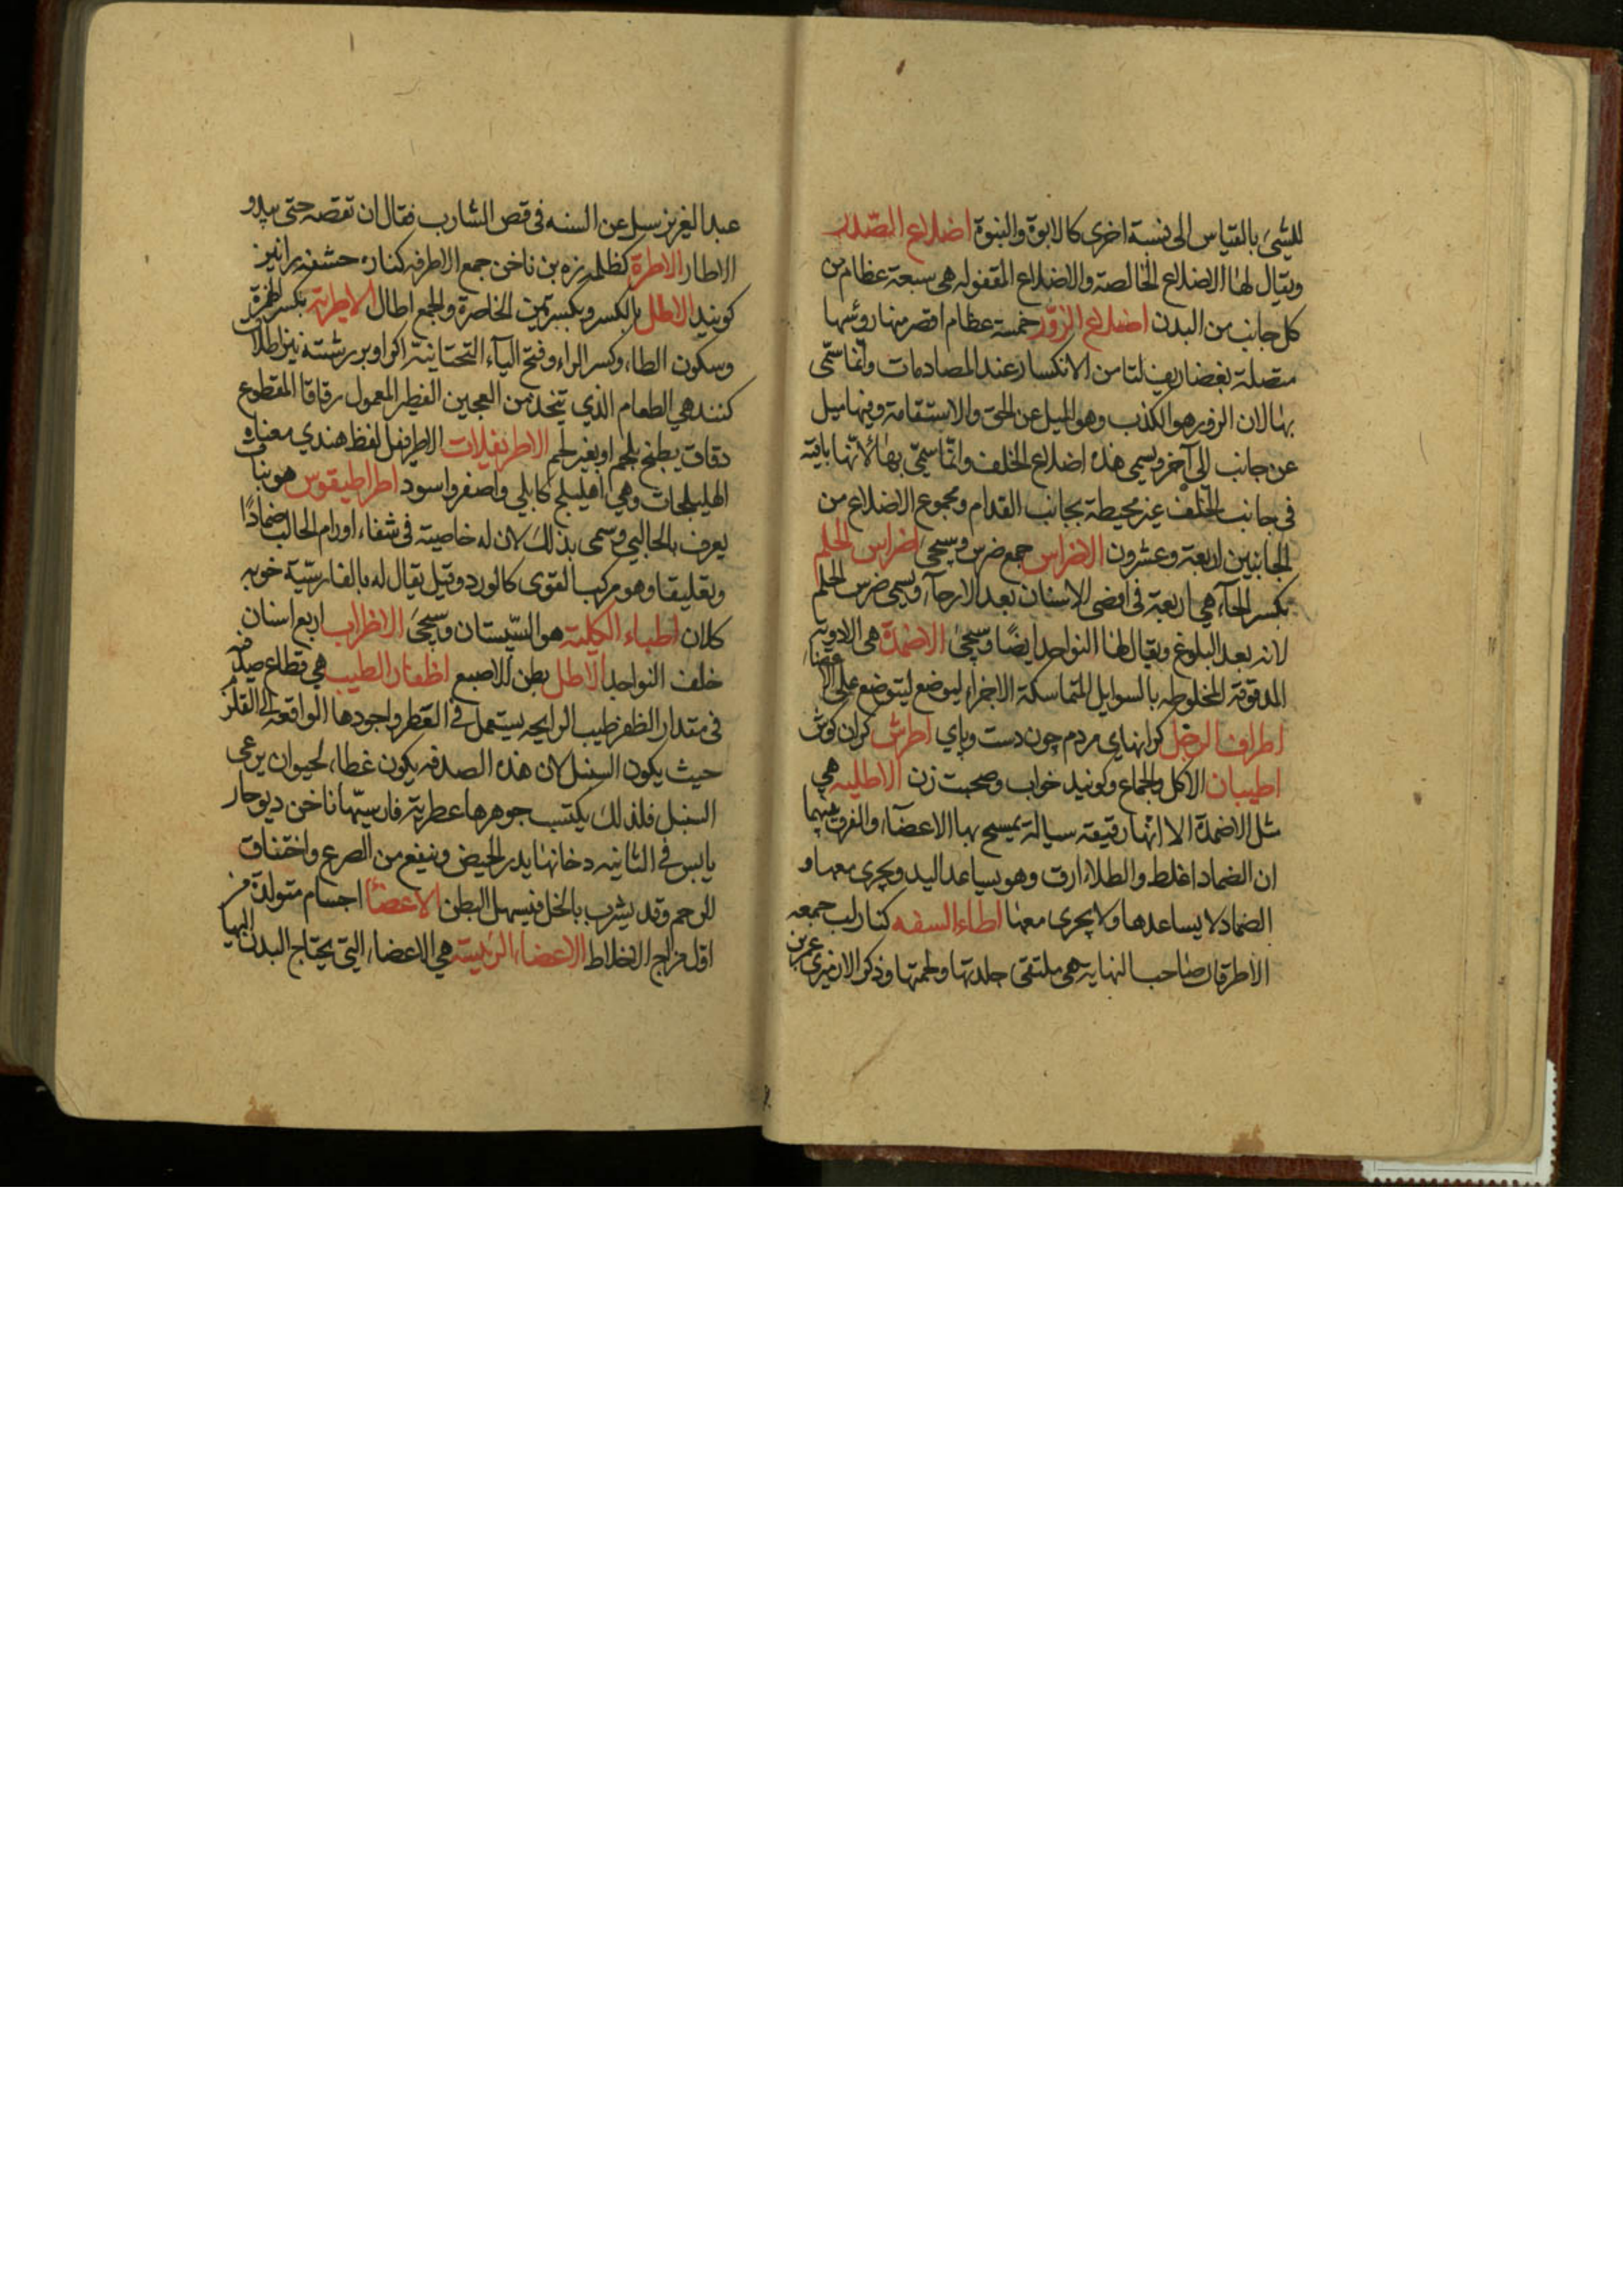 للشیء بالقیاس الی نسبة اخری کالابوة والبنوة اضلاع الصّدر
ویقال لها الاضلاع الخالصة والاضلاع المقفوله هی سبعة عظام من
کل جانب من البدن اضلاع الزّور خمسة عظام اقصر منها روئسها
متصلة بغضاریف لتامن الانکسار عند المصادمات وانما سمّی
بها لان الزور هو الکذب وهو المیل عن الحق والاستقامة وفیها میل
عن جانب الی آخر ویسمی هذه اضلاع الخلف وانّما سمّی بها لانّها باقیة
فی جانب الخلف غیر محیطة بجانب القدام ومجموع الاضلاع من
الجانبین اربعة وعشرون الاضراس جمع ضرس وسیجی اضراس الحلم
بکسر الحاء هی اربعة فی اقصی الاسنان بعد الارحاء ویسمی ضرس الحلم
لانه بعد البلوغ ویقال لها النواجد ایضًا وسیجیٔ الاضمدة هی الادویة
المدقوقة المخلوطه بالسوایل المتماسکة الاجزاء لیوضع علی الاعضاء
اطراف الرجل کرانهای مردم چون دست وپای اطرش کران کوش
اطیبان الاکل والجماع وکویند خواب وصحبت زن الاطلیه هی
مثل الاضمدة الا انها رقیقه سیالة یمسح بها الاعضآء والفرق بینهما
ان الضماد اغلظ والطلاء ارق وهو یساعد الید ویجری معها و
الضماد لا یساعدها ولا یجری معها اطاء السفه کنار لب جمعه
الاطر قال صاحب النهایة هی ملتقی جلدتها ولحمتها وذکر الازهری عمر بن
عبد العزیز سیل عن السنه فی قص الشارب فقال ان تقصه حتی یبدو
الاطار الاطرة کظلمه زه بن ناخن جمع الاطرفه کناره حشفه را نیز
کویند الاطل بالکسر وبکسرتین الخاصرة والجمع اطال الاطریة بکسر الهمزة
وسکون الطاء وکسر الراء وفتح الیآء التحتانیة اکرا وبر رشته نیز اطلاق
کنند هی الطعام الذی یتخذ من العجین الفطیر المعمول رقاقا المقطوع
دقاق یطبخ بلحم او بغیر لحم الاطریفلات الاطریفل لفظ هندی معناه
الهلیلجات وهی اهلیلج کابلی واصفر واسود اطراطیقوس هو نبات
یعرف بالحالبی وسمی بذلک لان له خاصیة فی شفاء اورام الحالب ضمادًا
وتعلیقا وهو مرکب القوی کالورد وقیل یقال له بالفارسیّة خوبه
کلان اطباء الکلبة هو السّپستان وسیجیَ الاظراب اربع اسنان
خلف النواجد الاطل بطن للاصبع اظفار الطیب هی قطاع صدفیة
فی مقدار الظفر طیب الرایحه یستعمل فی العطر واجودها الواقعة الی القلزم
حیث یکون السنبل لان هذه الصدفه یکون غطاء لحیوان یرعی
السنبل فلذلک یکتسب جوهرها عطریة فارسیّتها ناخن دیو حار
یابس فی الثانیه دخانها یدر الحیض وینفع من الصرع واختناق
الرحم وقد یشرب بالخل فیسهل البطن الاعضآء اجسام متولدة من
اوّل مزاج الاخلاط الاعضاء الرئیسة هی الاعضاء التی یحتاج البدن الیها